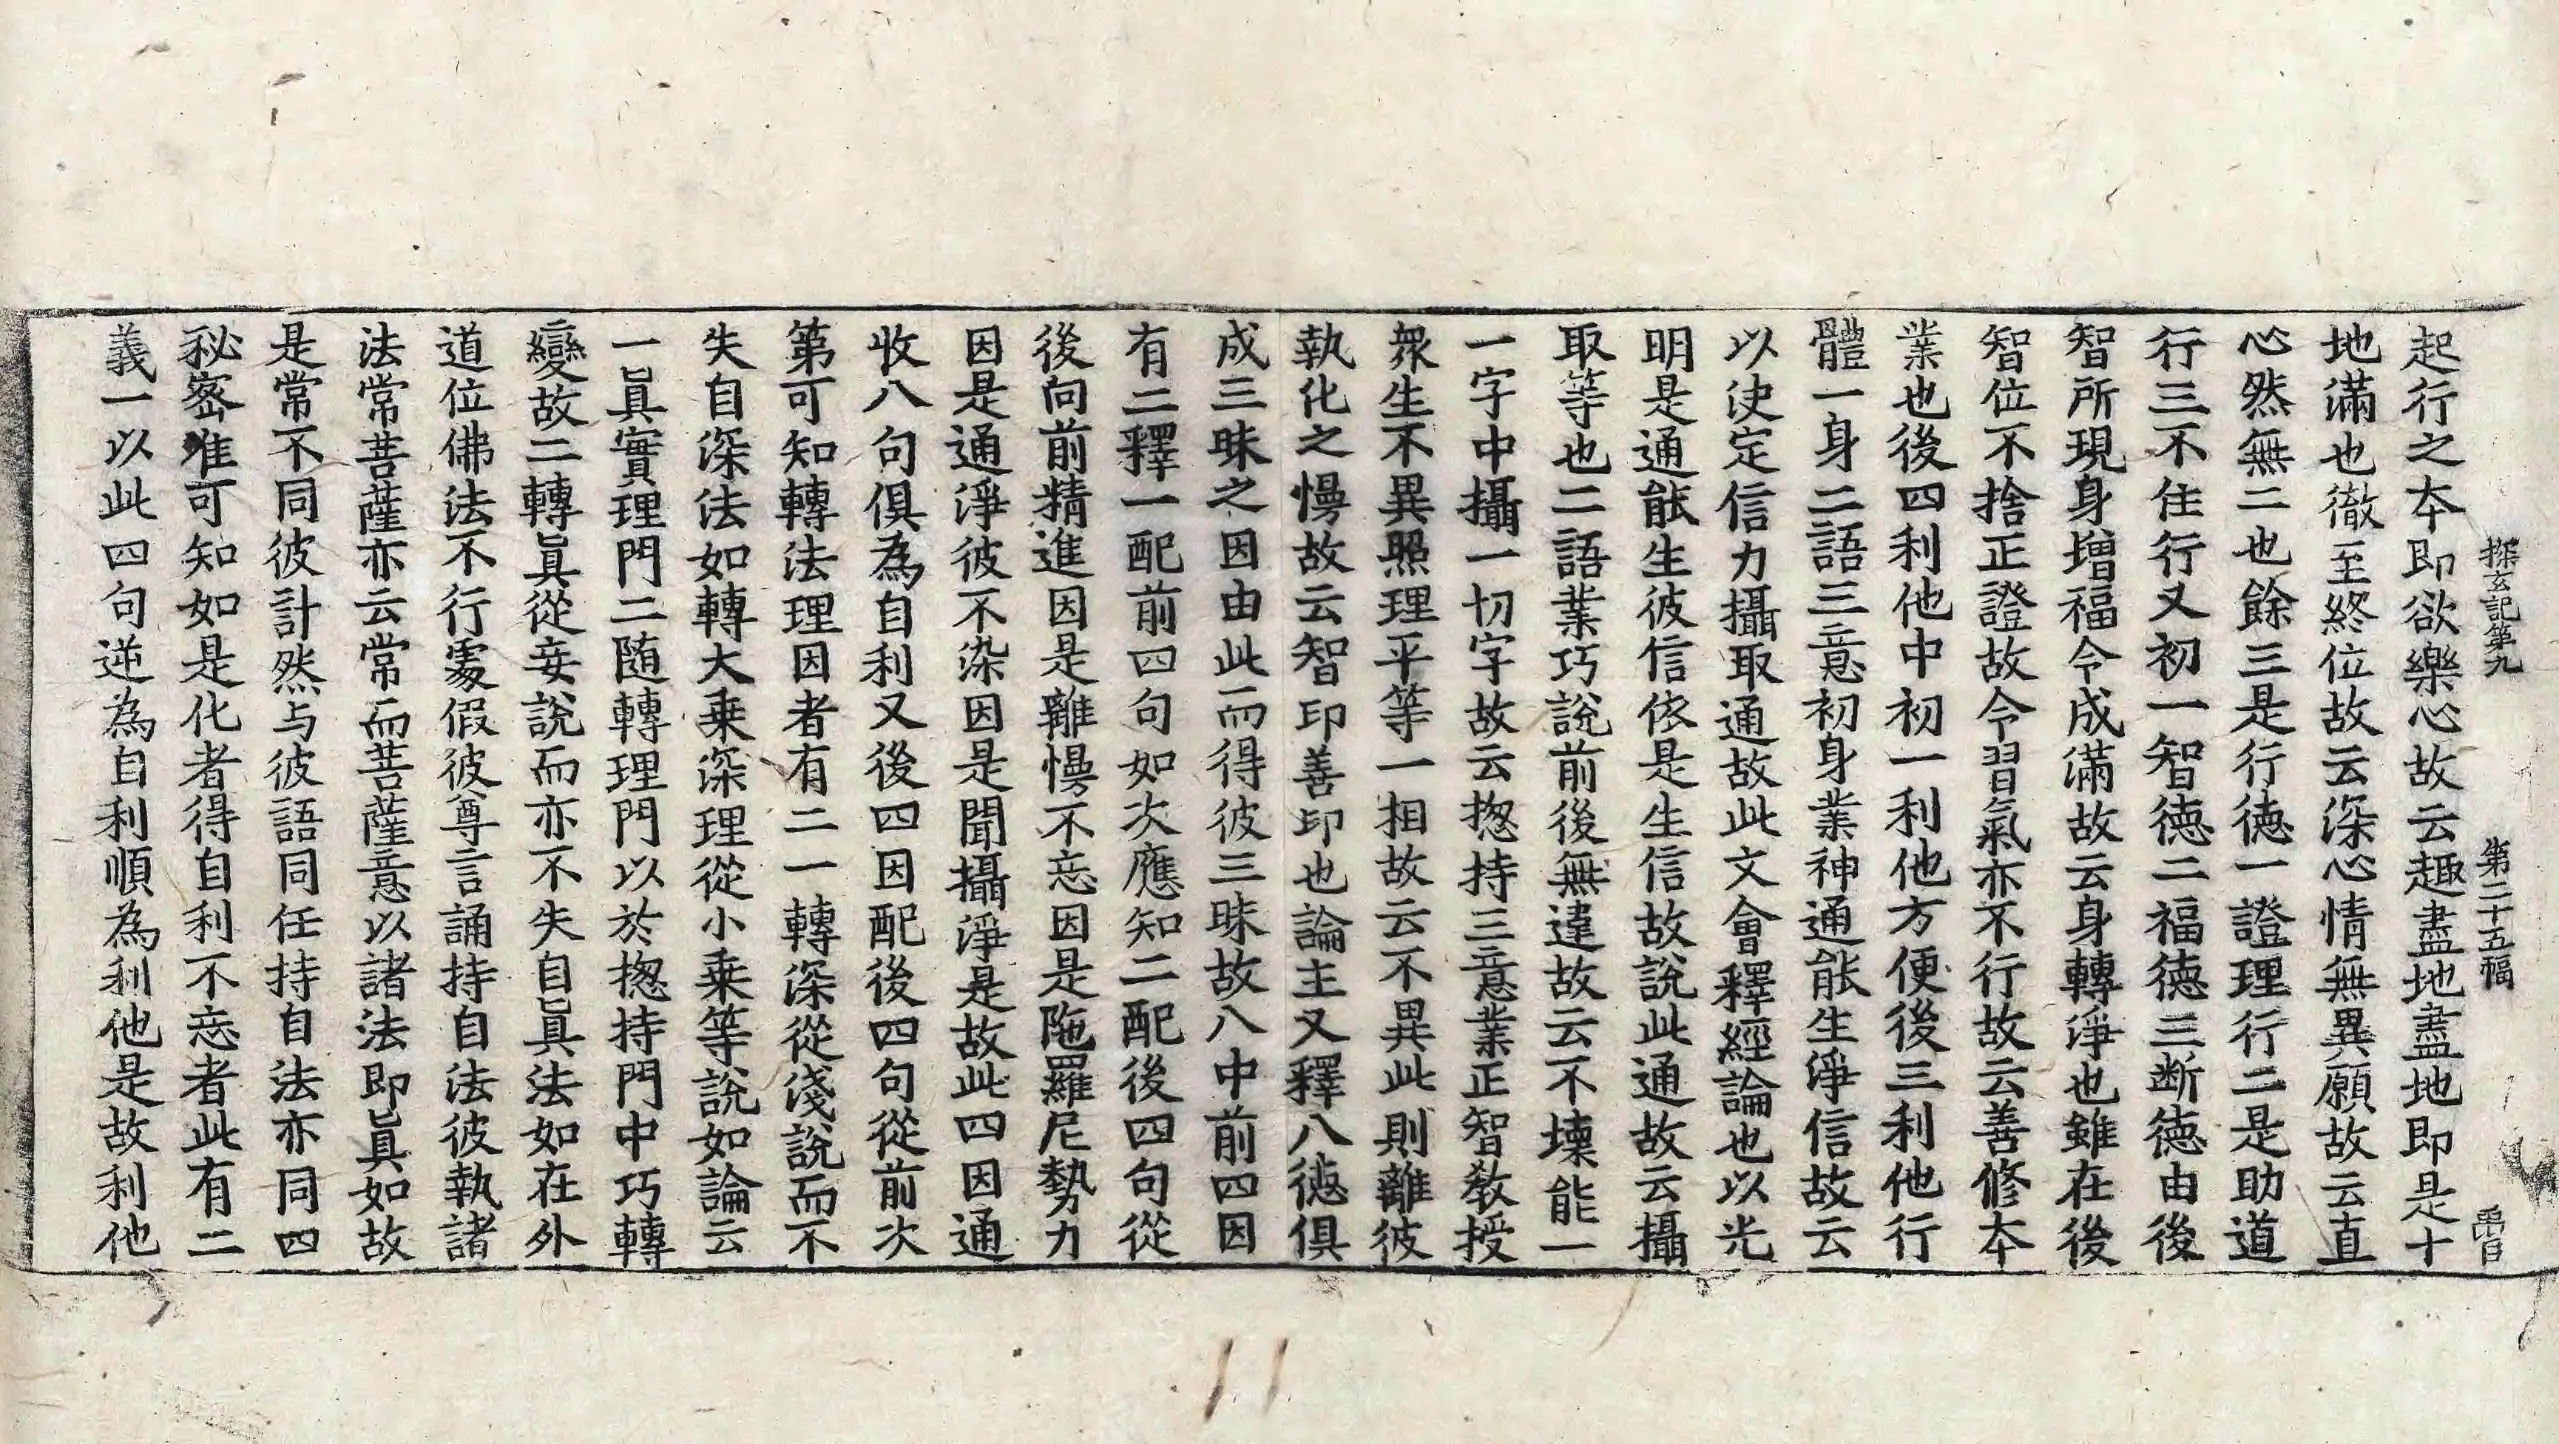 探玄記第九　第二十五幅　禹日
起行之本即欲樂心故云趣盡地盡地即是十
地滿也徹至終位故云深心情無異願故云直
心然無二也餘三是行德一證理行二是助道
行三不住行又初一智德二福德三断德由後
智所現身增福令成滿故云身轉淨也雖在後
智位不捨正證故令習氣亦不行故云善修本
業也後四利他中初一利他方便後三利他行
體一身二語三意初身業神通能生淨信故云
以决定信力攝取通故此文會釋經論也以光
明是通能生彼信依是生信故說此通故云攝
取等也二語業巧說前後無違故云不壞能一
一字中攝一切字故云揔持三意業正智教授
衆生不異照理平等一相故云不異此則離彼
執化之慢故云智印善印也論主又釋八德俱
成三昧之因由此而得彼三昧故八中前四因
有二釋一配前四句如次應知二配後四句從
後向前精進因是離慢不忘因是陁羅尼勢力
因是通淨彼不染因是聞攝淨是故此四因通
收八句俱為自利又後四因配後四句從前次
第可知轉法理因者有二一轉深從淺說而不
失自深法如轉大乗深理從小乗等說如論云
一眞實理門二随轉理門以於揔持門中巧轉
變故二轉眞從妄說而亦不失自眞法如在外
道位佛法不行處假彼尊言誦持自法彼執諸
法常菩薩亦云常而菩薩意以諸法即眞如故
是常不同彼計然与彼語同任持自法亦同四
秘密准可知如是化者得自利不忘者此有二
義一以此四句逆為自利順為利他是故利他